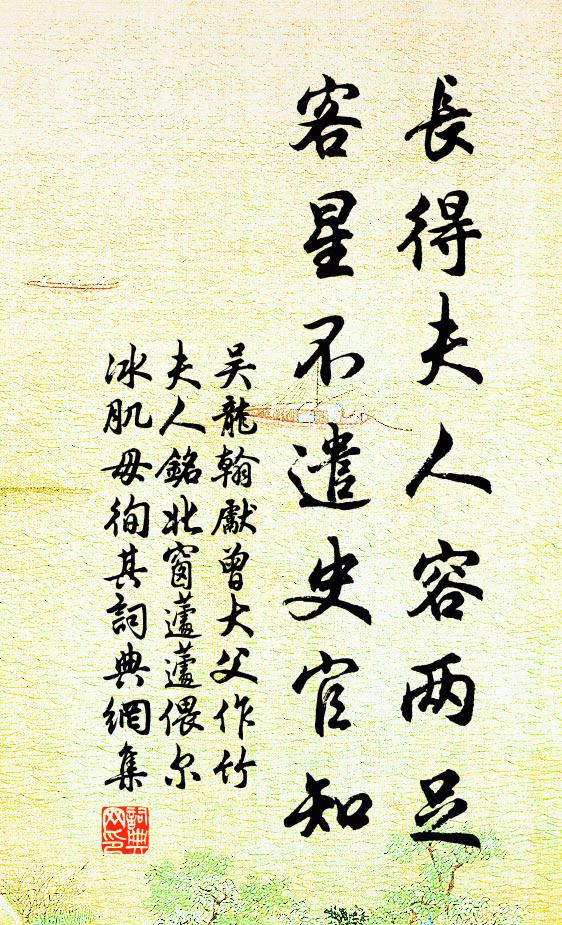 長得夫人容两足
客星不遣史官知
吴龍翰獻曾大父作竹
夫人銘北窗蘧蘧偎尔
冰肌毋徇其詞典網集
詞典网印